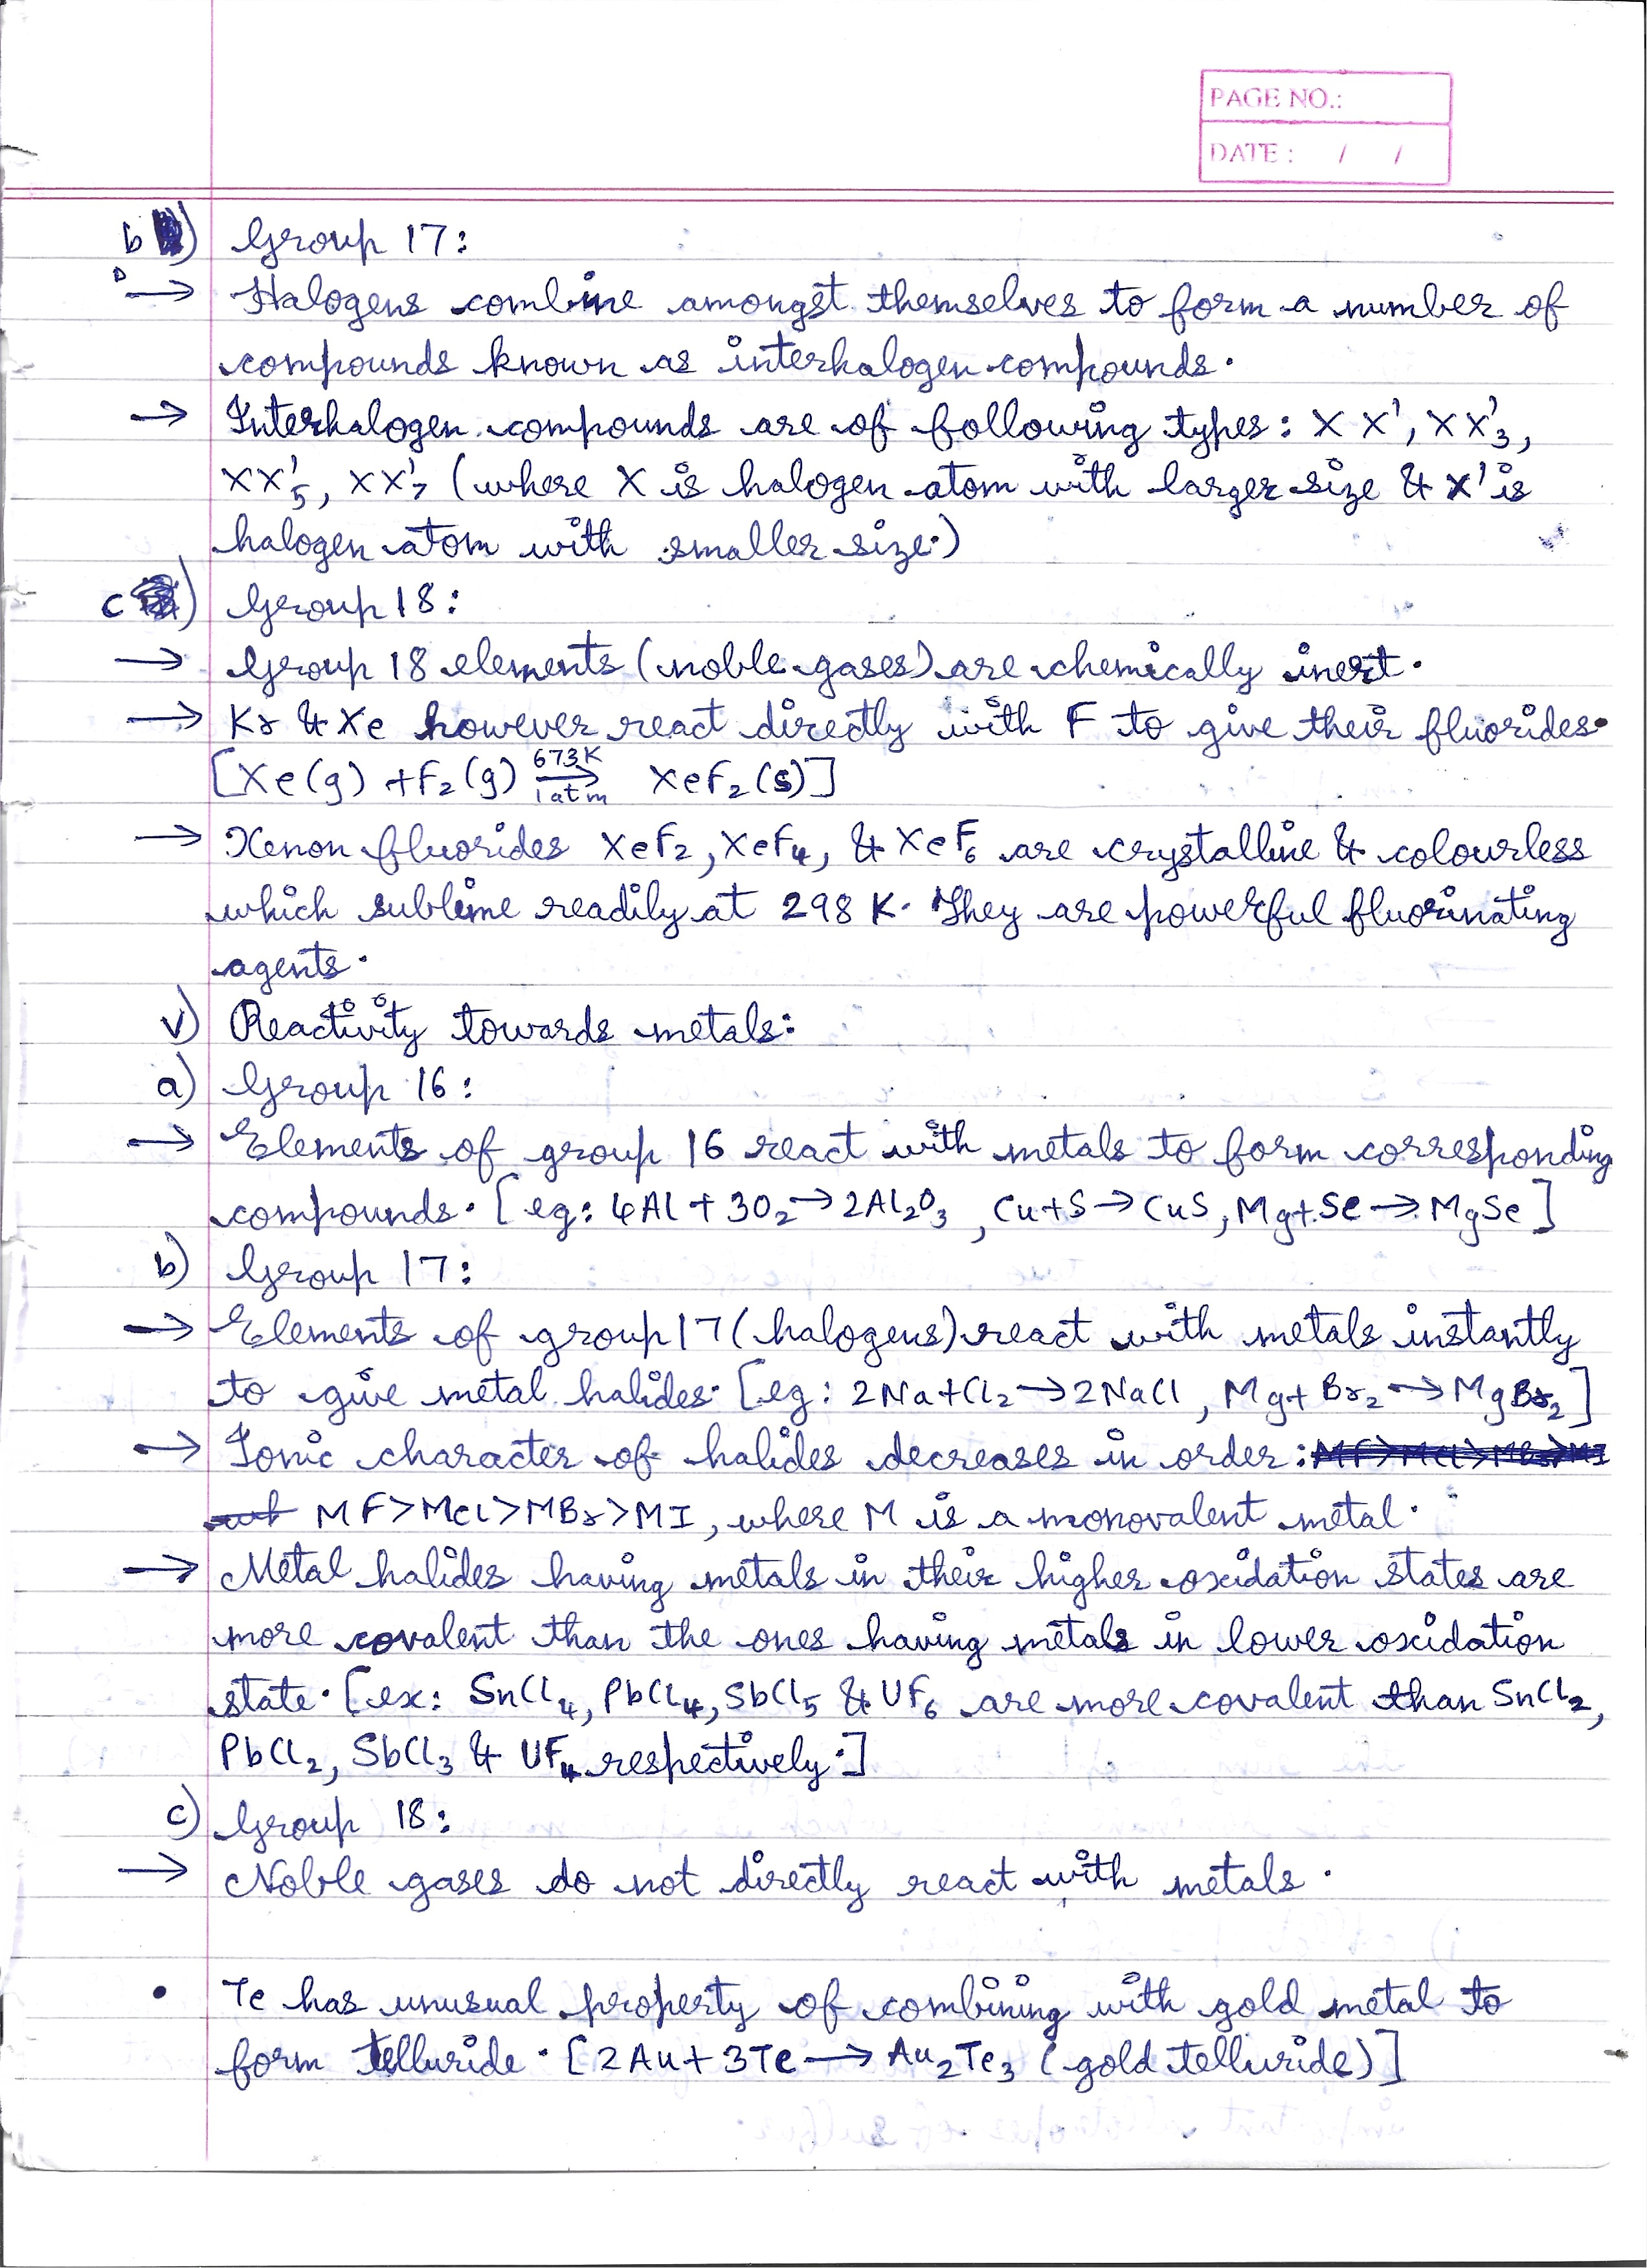 PAGE NO.:
DATE : / /
b) Group 17:
→ Halogens combine amongst themselves to form a number of
compounds known as interhalogen compounds.
→ Interhalogen compounds are of following types: X X', XX'₃,
XX'₅, XX'₇ (where X is halogen atom with larger size & X' is
halogen atom with smaller size.)
c) Group 18:
→ Group 18 elements (noble gases) are chemically inert.
→ Kr & Xe however react directly with F to give their fluorides.
[Xe(g) + F₂(g) 673K→1atm XeF₂(s)]
→ Xenon fluorides XeF₂, XeF₄, & XeF₆ are crystalline & colourless
which sublime readily at 298 K. They are powerful fluorinating
agents.
v) Reactivity towards metals:
a) Group 16:
→ Elements of group 16 react with metals to form corresponding
compounds. [eg: 4Al + 3O₂ → 2Al₂O₃, Cu+S → CuS, Mg+Se → MgSe]
b) Group 17:
→ Elements of group 17 (halogens) react with metals instantly
to give metal halides. [eg: 2Na+Cl₂ → 2NaCl, Mg+ Br₂ → MgBr₂]
→ Ionic character of halides decreases in order: MF>MCl>MBr>MI
MF>MCl>MBr>MI, where M is a monovalent metal.
→ Metal halides having metals in their higher oxidation states are
more covalent than the ones having metals in lower oxidation
state. [ex: SnCl₄, PbCl₄, SbCl₅ & UF₆ are more covalent than SnCl₂,
PbCl₂, SbCl₃ & UF₄ respectively.]
c) Group 18:
→ Noble gases do not directly react with metals.
• Te has unusual property of combining with gold metal to
form telluride. [2Au + 3Te → Au₂Te₃ (gold telluride)]